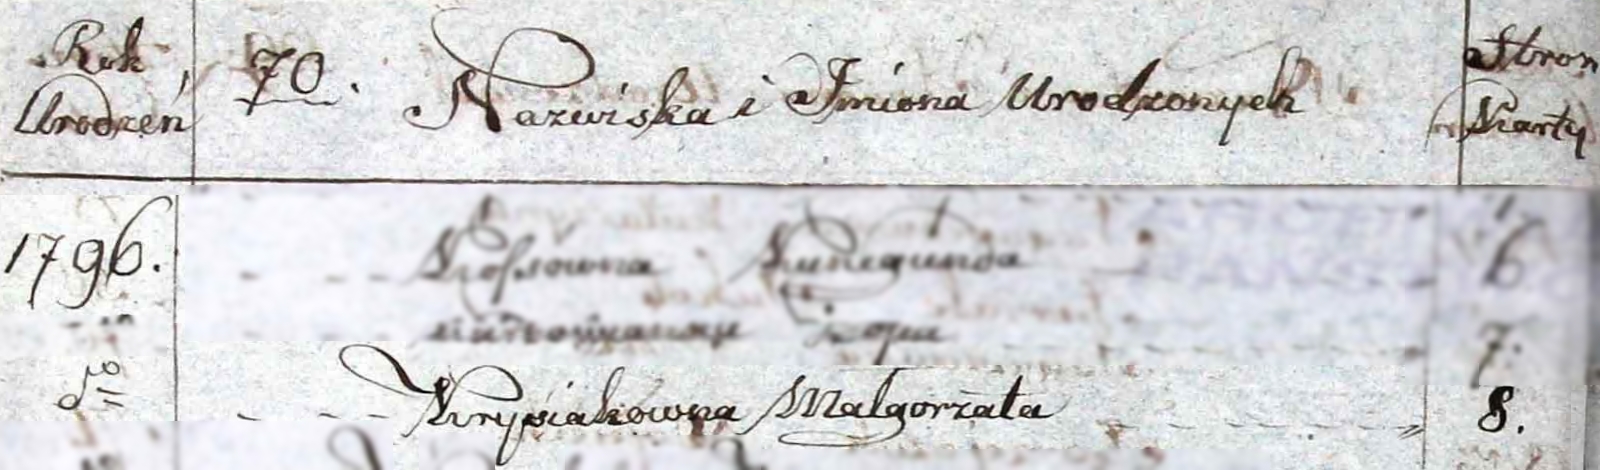 Rok 70. Nazwiska i Imiona Urodzonych Stron
Urodzeń Karty
1796. Kossowna Kunegunda 6
7.
do Krysiakowna Małgorzata 8.